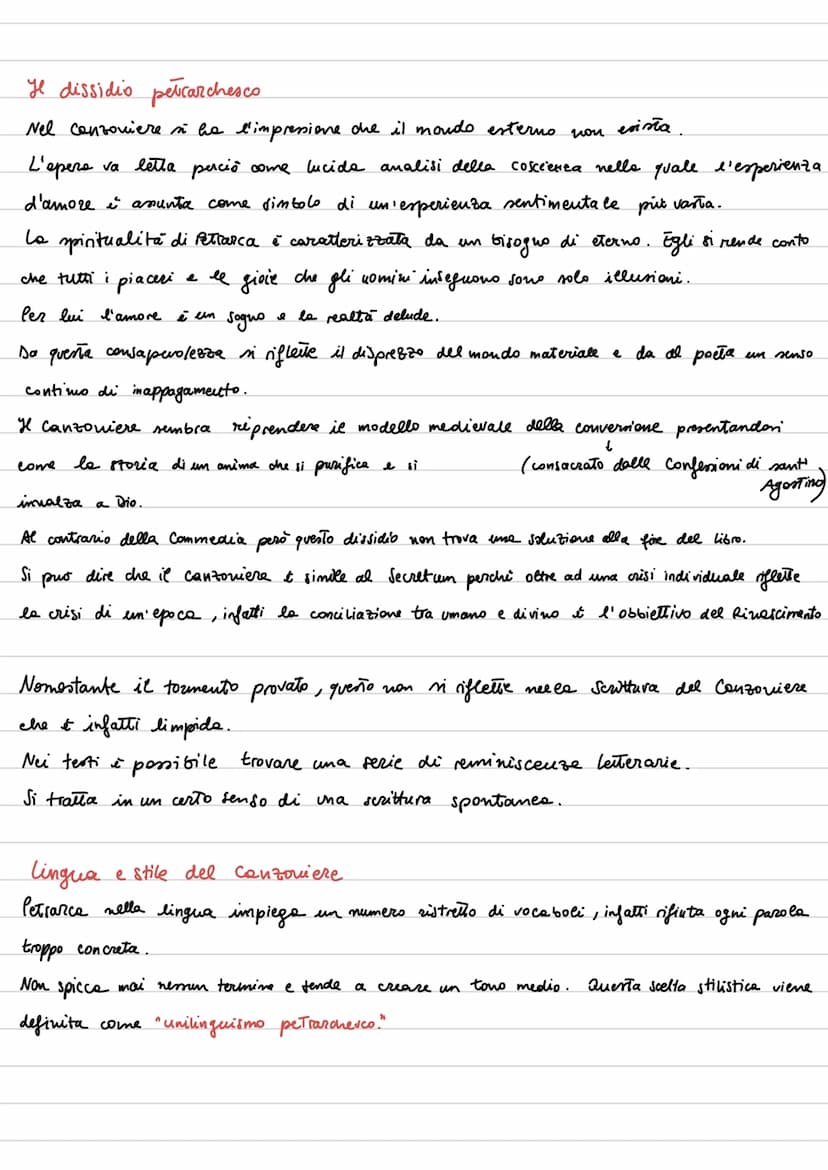 Il dissidio petrarchesco
Nel Canzoniere si ha l'impressione che il mondo esterno non esista.
L'opera va letta perciò come lucida analisi della coscienza nella quale l'esperienza
d'amore è assunta come simbolo di un'esperienza sentimentale più vasta.
La spiritualità di Petrarca è caratterizzata da un bisogno di eterno. Egli si rende conto
che tutti i piaceri e le gioie che gli uomini inseguono sono solo illusioni.
Per lui l'amore è un sogno e la realtà delude.
Da questa consapevolezza si riflette il disprezzo del mondo materiale e da al poeta un senso
continuo di inappagamento.
Il Canzoniere sembra riprendere il modello medievale della conversione presentandosi
come la storia di un anima che si purifica e si
(consacrato dalle Confessioni di sant'
Agostino)
innalza a Dio.
Al contrario della Commedia però questo dissidio non trova una soluzione alla fine del libro.
Si può dire che il Canzoniere è simile al Secretum perché oltre ad una crisi individuale riflette
la crisi di un'epoca, infatti la conciliazione tra umano e divino è l'obbiettivo del Rinascimento
Nonostante il tormento provato, questo non si riflette nella scrittura del Canzoniere
che è infatti limpida.
Nei testi è possibile trovare una serie di reminiscenze letterarie.
Si tratta in un certo senso di una scrittura spontanea.
Lingua e stile del Canzoniere
Petrarca nella lingua impiega un numero ristretto di vocaboli, infatti rifiuta ogni parola
troppo concreta.
Non spicca mai nessun termine e tende a creare un tono medio. Questa scelta stilistica viene
definita come "unilinguismo petrarchesco."